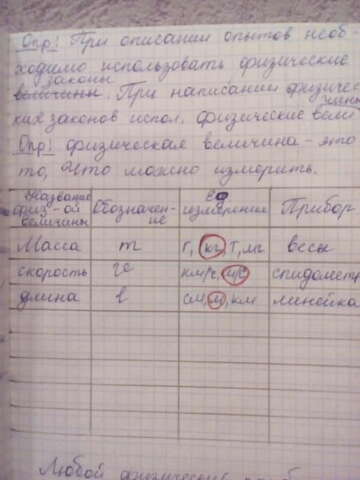 Опр: При описании опытов необ-
ходимо использовать физические
законы
величины. При написании физичес
ких законов испол. физические вели
чины
Опр: физическая величина - это
то, что можно измерить.
Название физ-ой величины Обозначен-ие ед измерения Прибор
Масса m г, кг, т, мг весы
скорость км/ч м/с спидометр
длина l см, м, км линейка
Любой физический